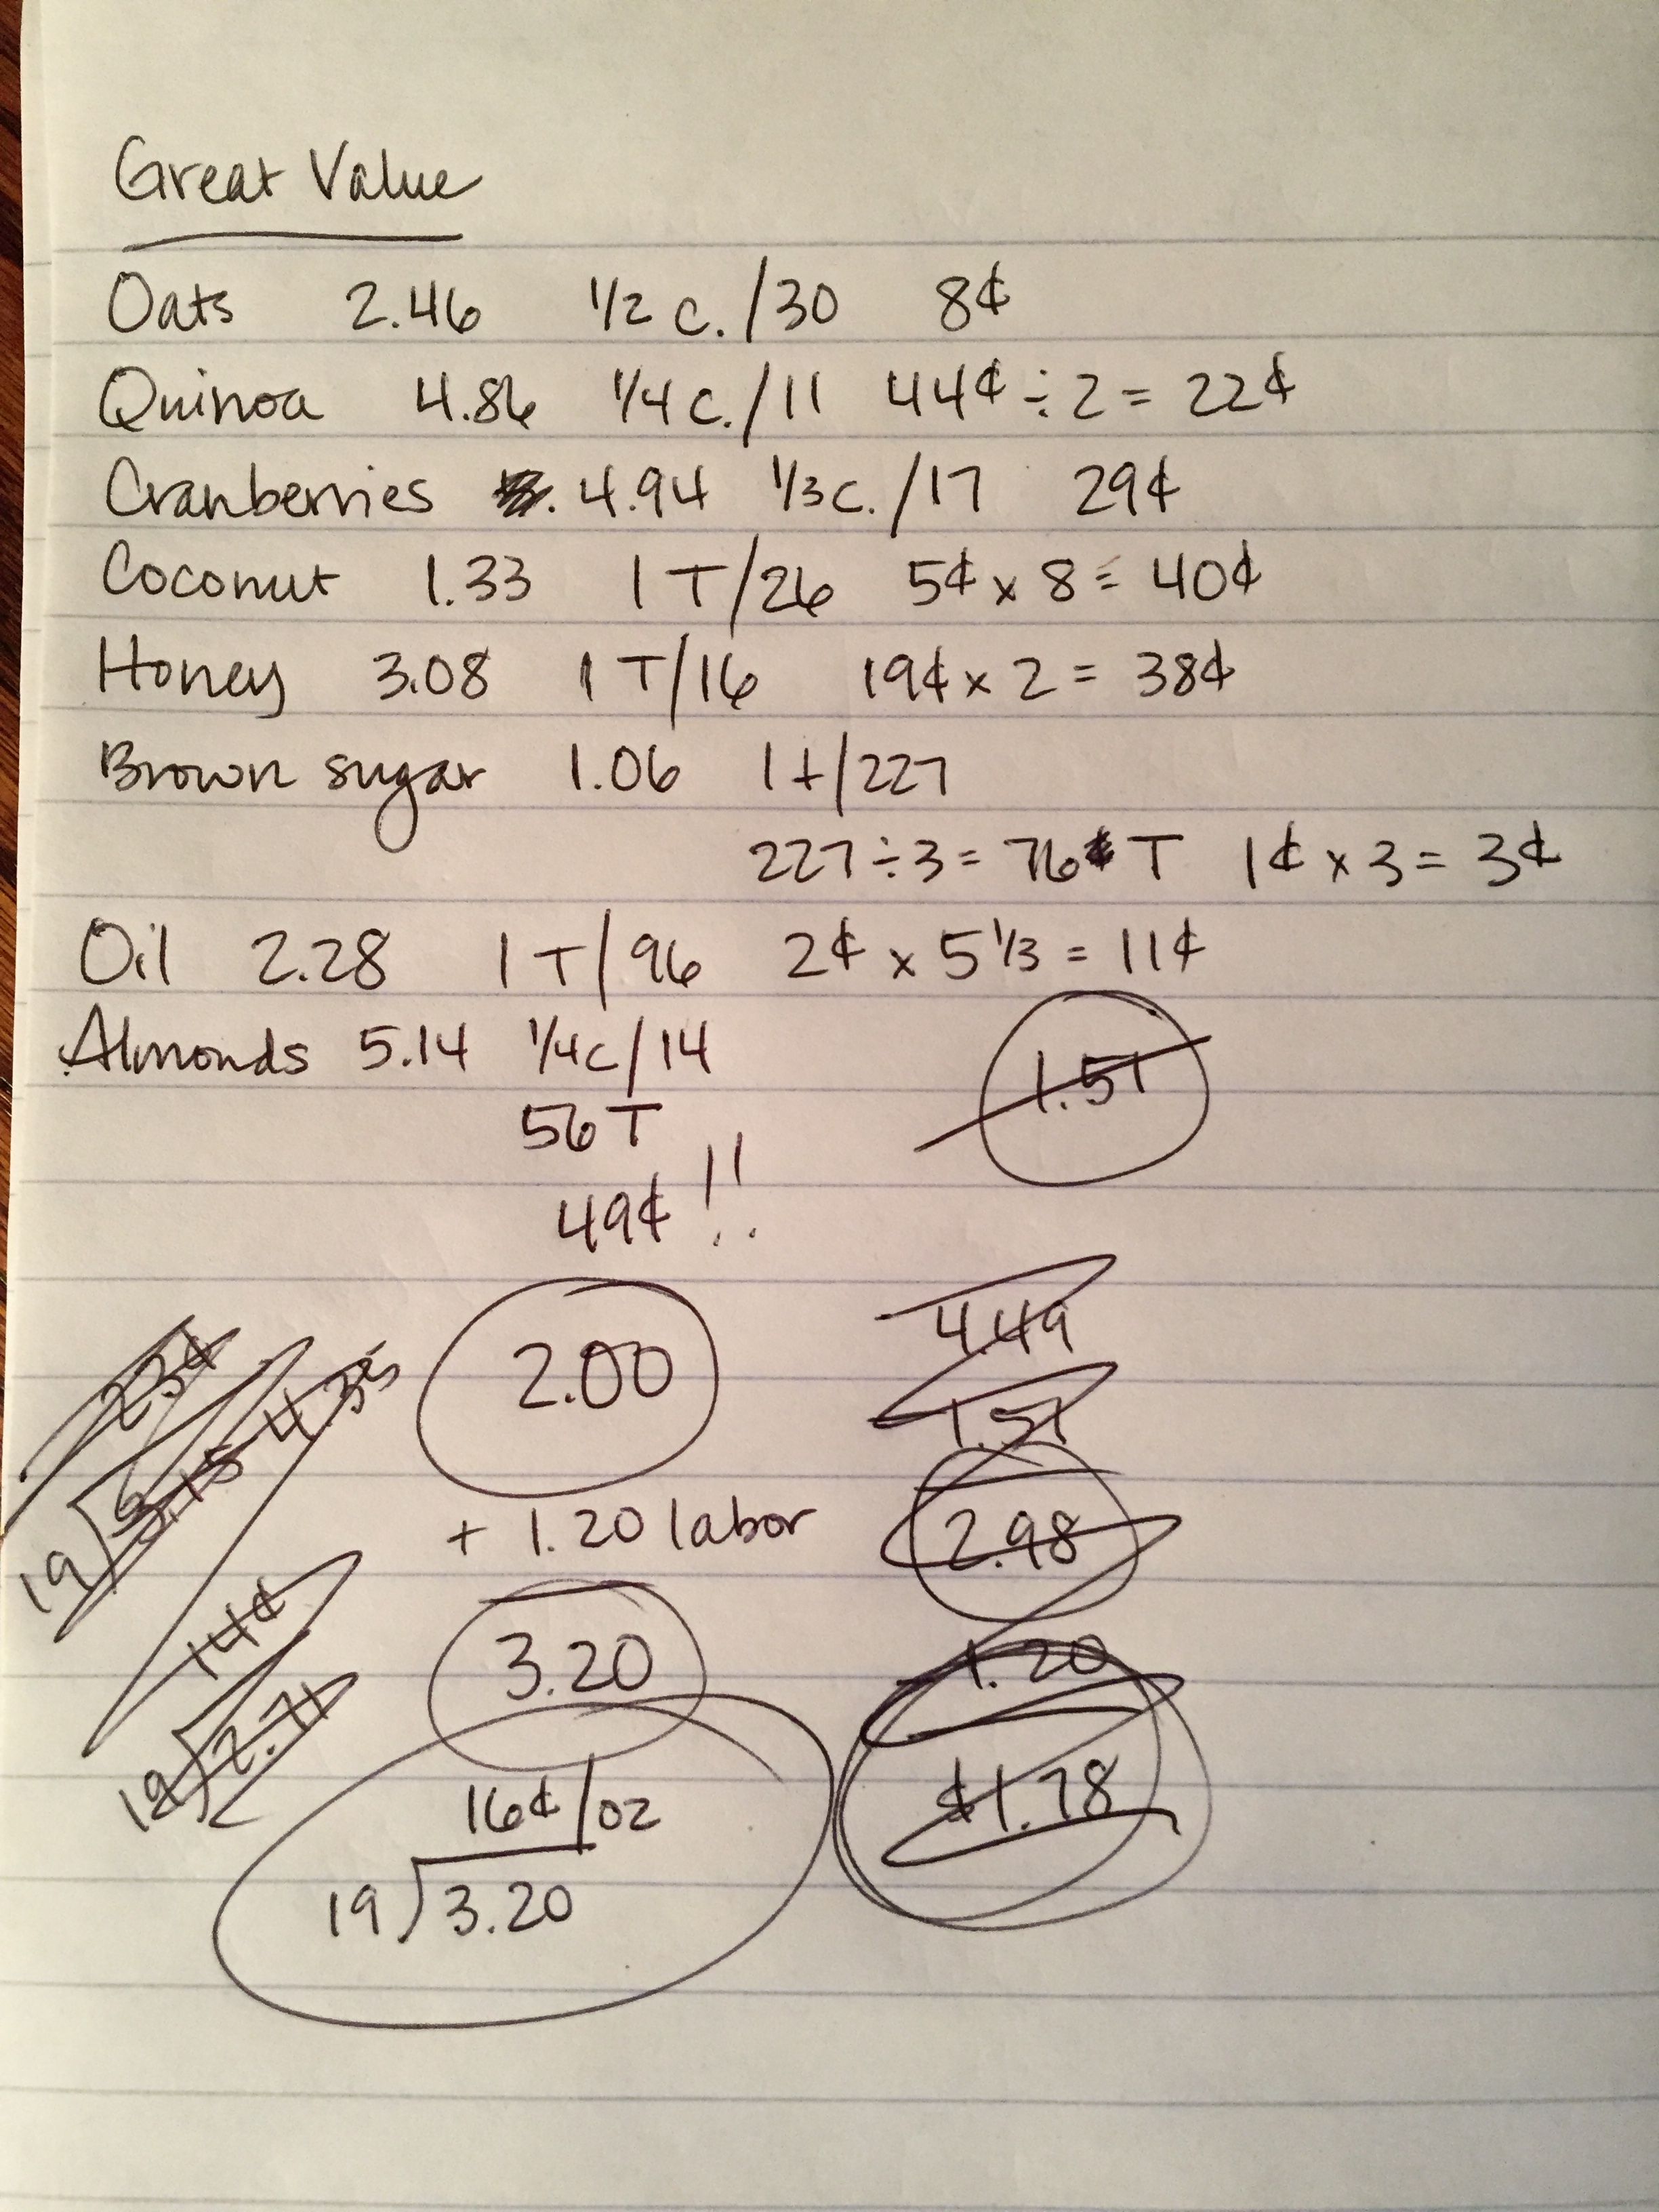 Great Value
Oats 2.46 1/2 c./30 8¢
Quinoa 4.86 1/4 c./11 44¢ ÷ 2 = 22¢
Cranberries 4.94 1/3 c./17 29¢
Coconut 1.33 1 T/26 5¢ x 8 = 40¢
Honey 3.08 1 T/16 19¢ x 2 = 38¢
Brown sugar 1.06 1 t/227
227 ÷ 3 = 76 T 1¢ x 3 = 3¢
Oil 2.28 1 T/96 2¢ x 5 1/3 = 11¢
Almonds 5.14 1/4c/14
1.51
56 T
49¢!!
2.00
4.49
1.51
2.98
+ 1.20 labor
1.20
$1.78
3.20
16¢/oz
19 3.20
23¢
19
4.35
14¢
19 2.71